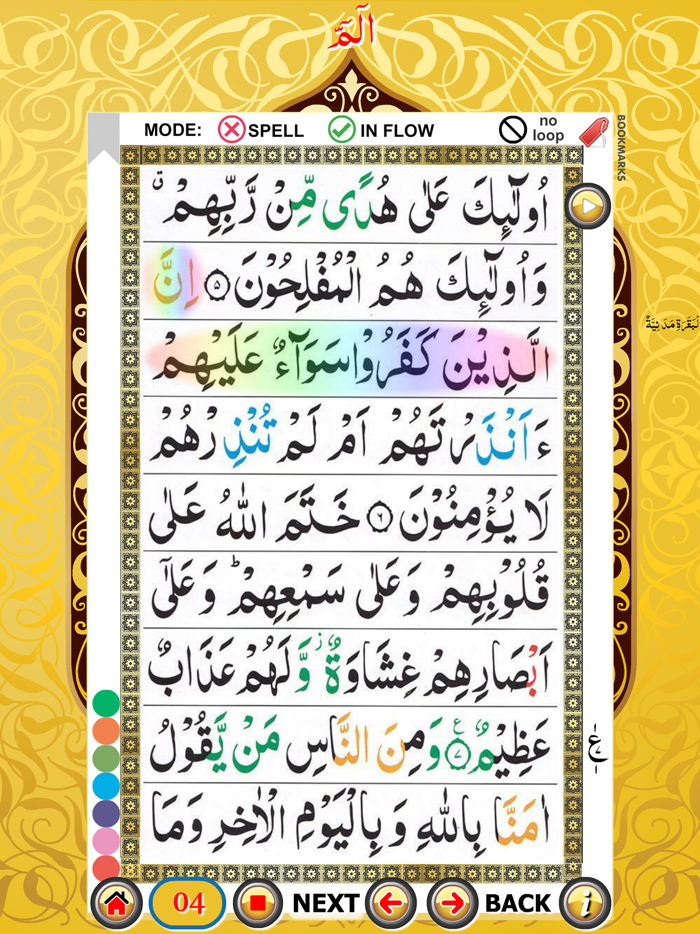 الٓمّٓ
MODE: SPELL IN FLOW no loop
BOOKMARKS
اُولٰٓئِكَ عَلٰی هُدًی مِّنْ رَّبِّهِمْ ۗ
وَاُولٰٓئِكَ هُمُ الْمُفْلِحُوْنَ ۝۵ اِنَّ
الَّذِيْنَ كَفَرُوْا سَوَآءٌ عَلَيْهِمْ
ءَاَنْذَرْتَهُمْ اَمْ لَمْ تُنْذِرْهُمْ
لَا يُؤْمِنُوْنَ ۝۶ خَتَمَ اللّٰهُ عَلٰی
قُلُوْبِهِمْ وَعَلٰی سَمْعِهِمْ ؕ وَعَلٰٓی
اَبْصَارِهِمْ غِشَاوَةٌ ؗ وَّلَهُمْ عَذَابٌ
عَظِيْمٌ ۝۷ وَمِنَ النَّاسِ مَنْ يَّقُوْلُ
اٰمَنَّا بِاللّٰهِ وَبِالْيَوْمِ الْاٰخِرِ وَمَا
ع
04 NEXT BACK i